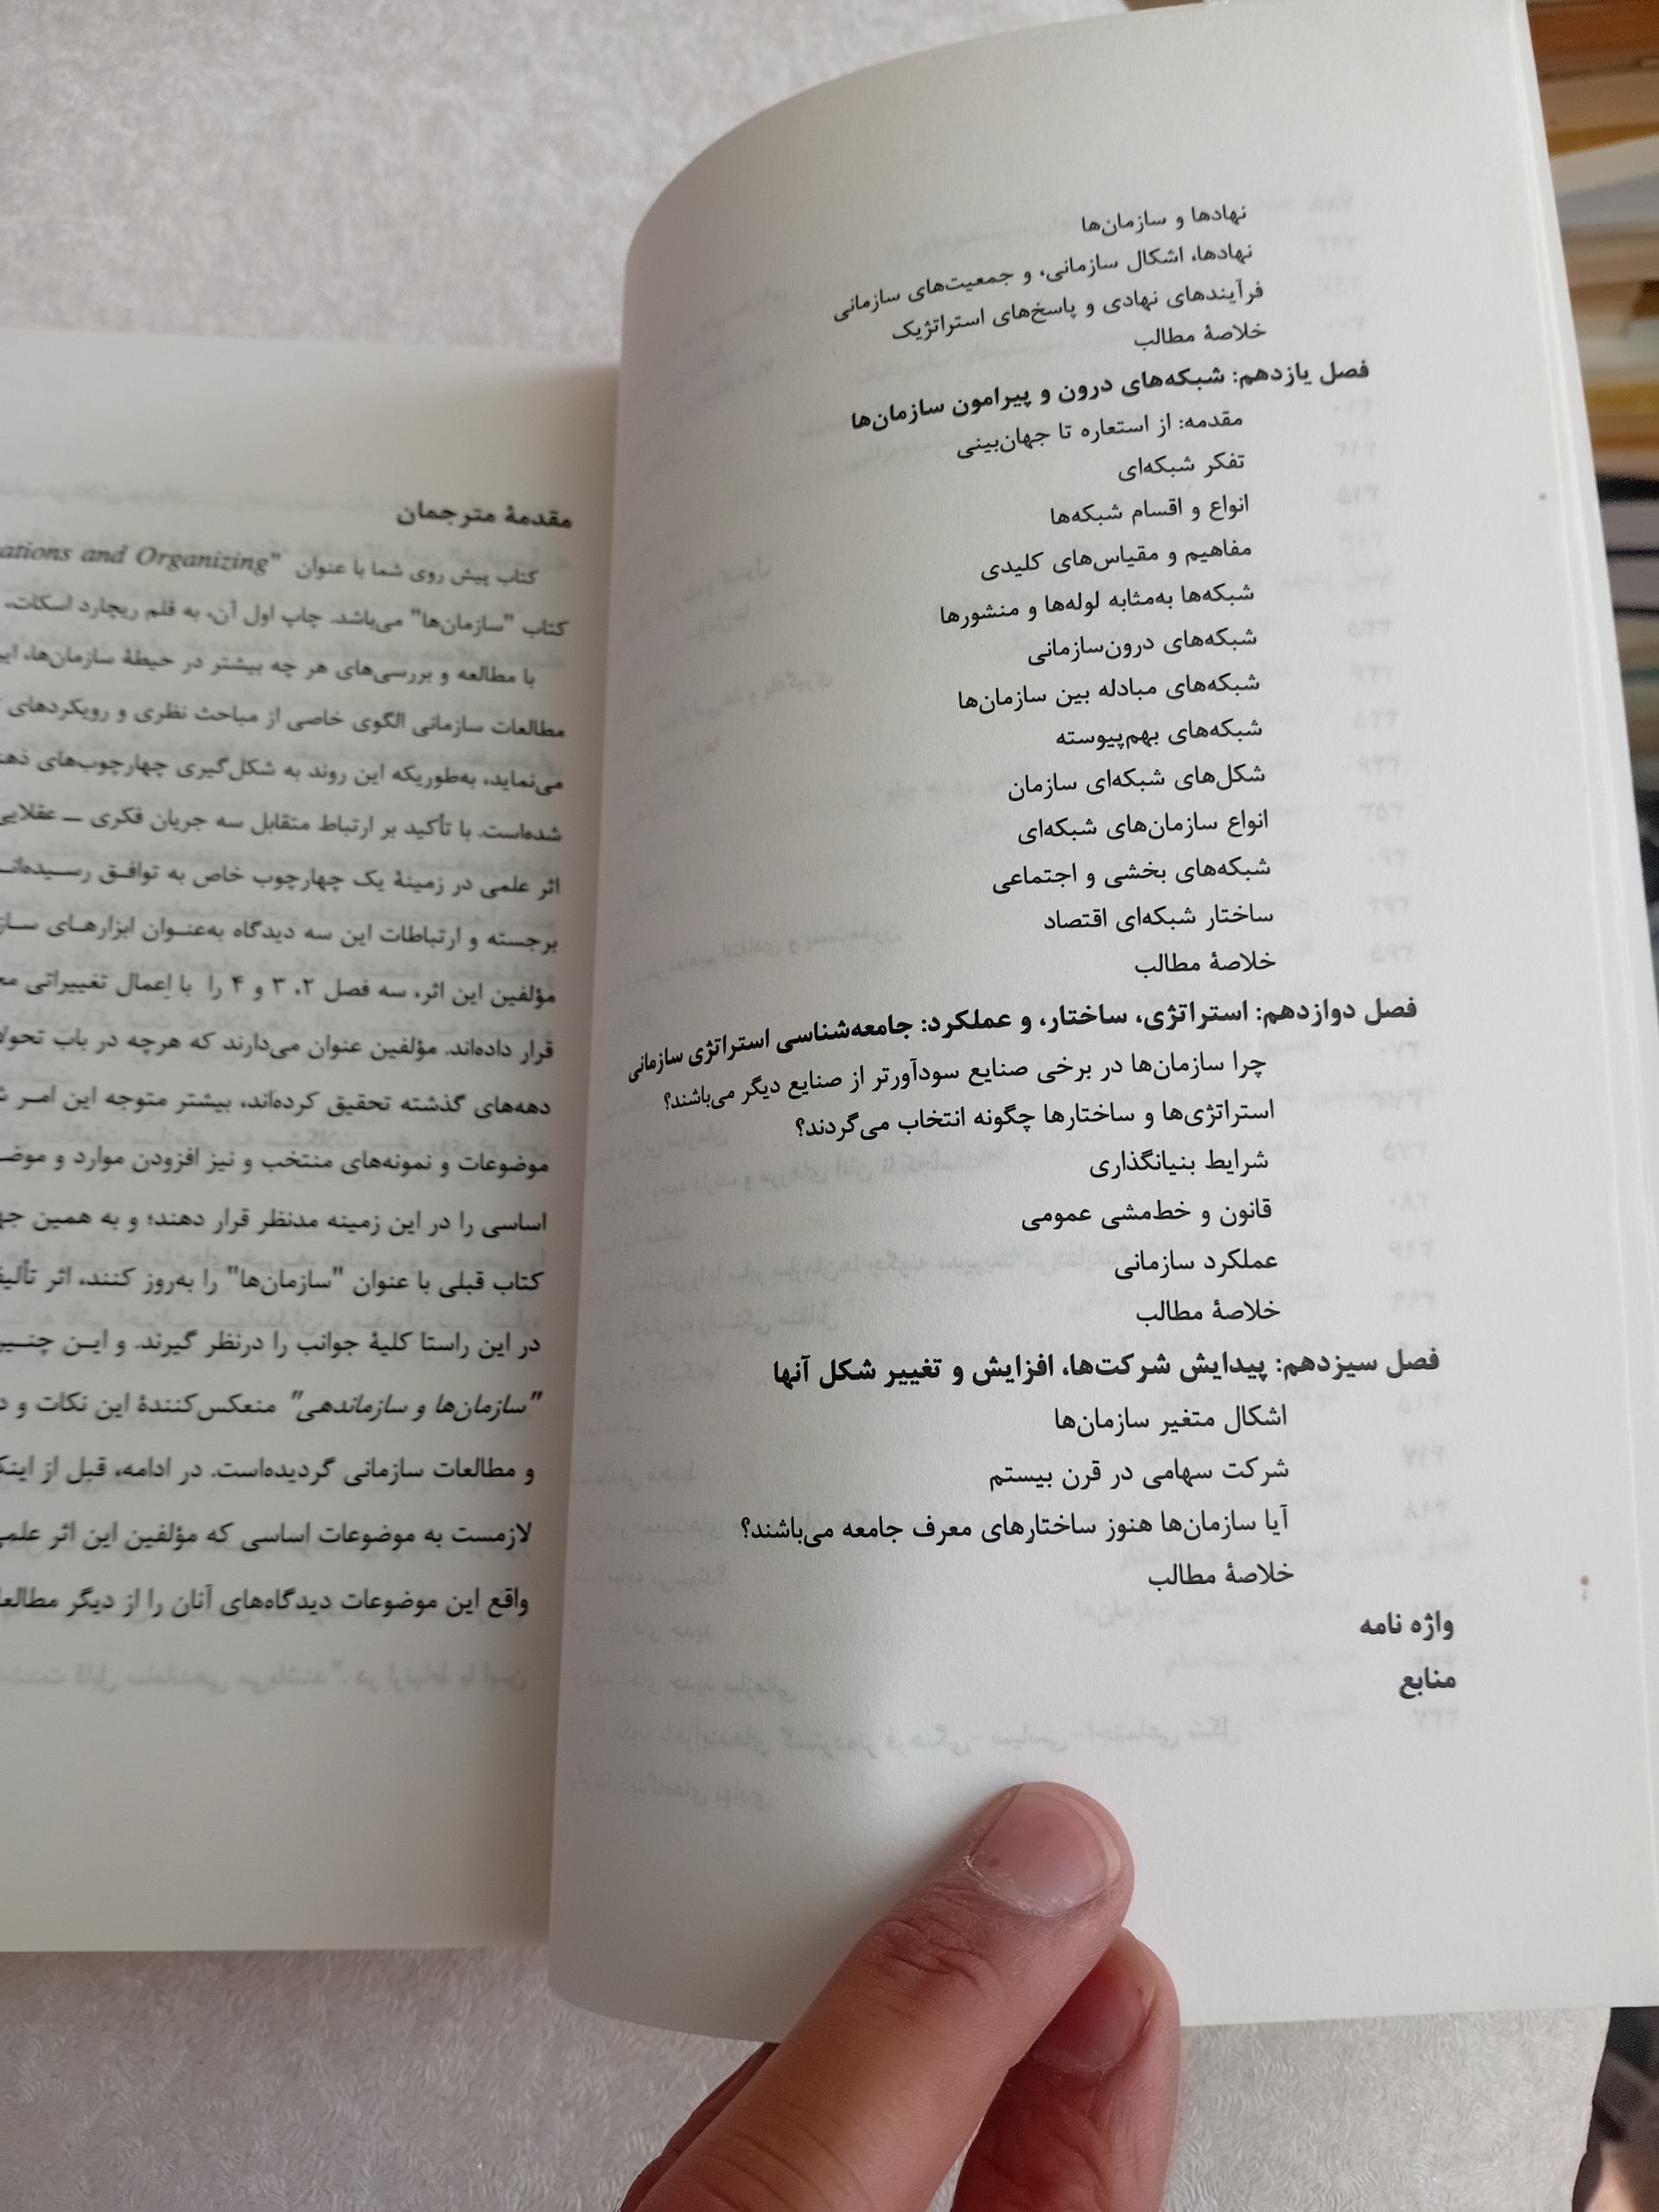 نهادها و سازمان‌ها
نهادها، اشکال سازمانی، و جمعیت‌های سازمانی
فرآیندهای نهادی و پاسخ‌های استراتژیک
خلاصهٔ مطالب
فصل یازدهم: شبکه‌های درون و پیرامون سازمان‌ها
مقدمه: از استعاره تا جهان‌بینی
تفکر شبکه‌ای
انواع و اقسام شبکه‌ها
مفاهیم و مقیاس‌های کلیدی
شبکه‌ها به‌مثابه لوله‌ها و منشورها
شبکه‌های درون‌سازمانی
شبکه‌های مبادله بین سازمان‌ها
شبکه‌های بهم‌پیوسته
شکل‌های شبکه‌ای سازمان
انواع سازمان‌های شبکه‌ای
شبکه‌های بخشی و اجتماعی
ساختار شبکه‌ای اقتصاد
خلاصهٔ مطالب
فصل دوازدهم: استراتژی، ساختار، و عملکرد: جامعه‌شناسی استراتژی سازمانی
چرا سازمان‌ها در برخی صنایع سودآورتر از صنایع دیگر می‌باشند؟
استراتژی‌ها و ساختارها چگونه انتخاب می‌گردند؟
شرایط بنیانگذاری
قانون و خط‌مشی عمومی
عملکرد سازمانی
خلاصهٔ مطالب
فصل سیزدهم: پیدایش شرکت‌ها، افزایش و تغییر شکل آنها
اشکال متغیر سازمان‌ها
شرکت سهامی در قرن بیستم
آیا سازمان‌ها هنوز ساختارهای معرف جامعه می‌باشند؟
خلاصهٔ مطالب
واژه نامه
منابع
مقدمهٔ مترجمان
کتاب پیش روی شما با عنوان "ations and Organizing"
کتاب "سازمان‌ها" می‌باشد. چاپ اول آن، به قلم ریچارد اسکات،
با مطالعه و بررسی‌های هر چه بیشتر در حیطهٔ سازمان‌ها،
مطالعات سازمانی الگوی خاصی از مباحث نظری و رویکردهای
می‌نماید، به‌طوریکه این روند به شکل‌گیری چهارچوب‌های
شده‌است. با تأکید بر ارتباط متقابل سه جریان فکری ــ عقلایی
اثر علمی در زمینهٔ یک چهارچوب خاص به توافق
برجسته و ارتباطات این سه دیدگاه به‌عنوان ابزارهای
مؤلفین این اثر، سه فصل ۲، ۳ و ۴ را با اِعمال تغییراتی
قرار داده‌اند. مؤلفین عنوان می‌دارند که هرچه در باب
دهه‌های گذشته تحقیق کرده‌اند، بیشتر متوجه این امر
موضوعات و نمونه‌های منتخب و نیز افزودن موارد و
اساسی را در این زمینه مدنظر قرار دهند؛ و به همین
کتاب قبلی با عنوان "سازمان‌ها" را به‌روز کنند، اثر
در این راستا کلیهٔ جوانب را درنظر گیرند. و این
"سازمان‌ها و سازماندهی" منعکس‌کنندهٔ این نکات و
و مطالعات سازمانی گردیده‌است. در ادامه، قبل از
لازمست به موضوعات اساسی که مؤلفین این اثر
واقع این موضوعات دیدگاه‌های آنان را از دیگر